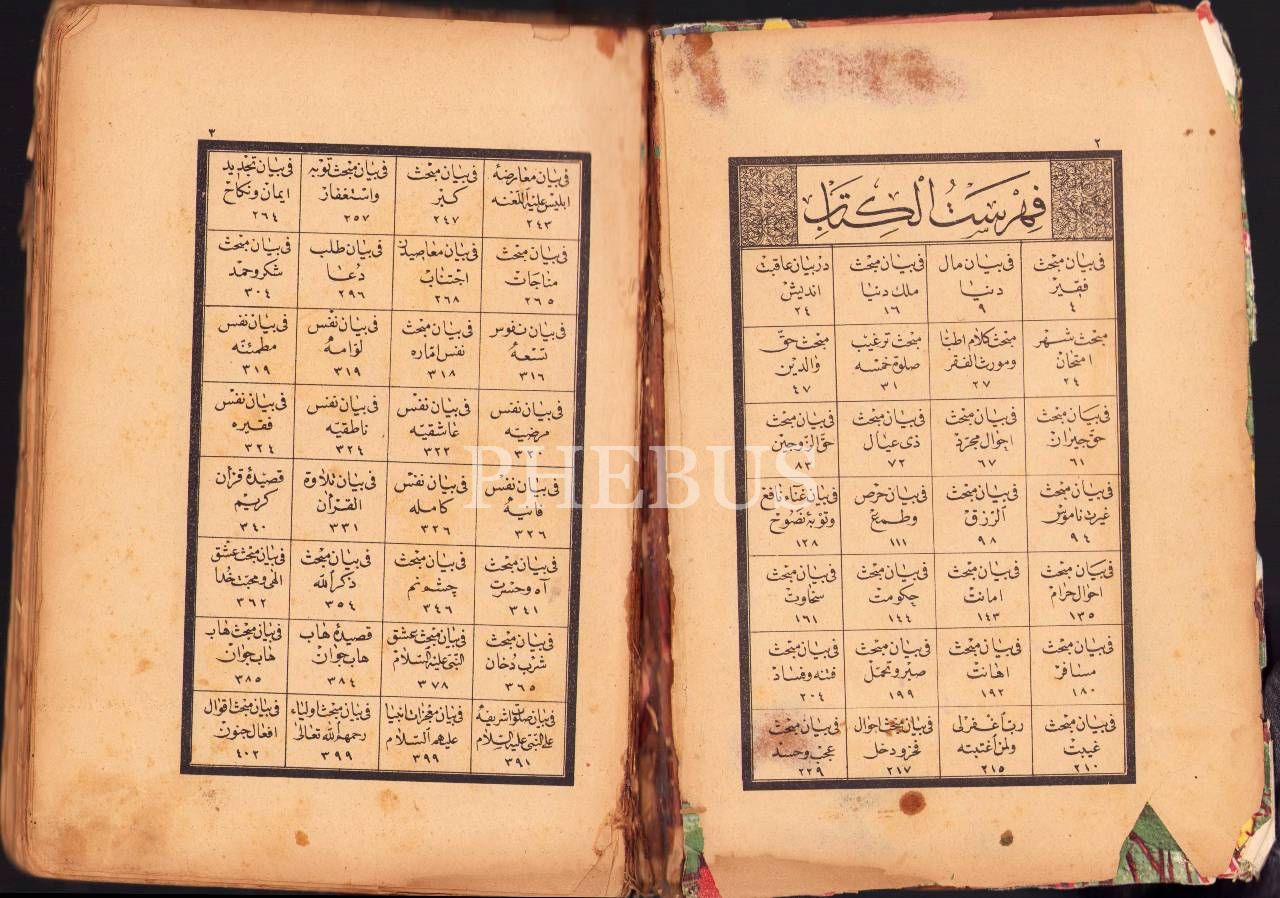 ٢
فهرست الكتاب
فى بيان مبحث
فقير
٤
فى بيان مال
دنيا
٩
فى بيان مبحث
ملك دنيا
١٦
در بيان عاقبت
انديش
٢٤
مبحث شهر
امتحان
٢٤
مبحث كلام اطبا
ومورث الفقر
٢٧
مبحث ترغيب
صلوة خمسه
٣١
مبحث حق
والدين
٤٧
فى بيان مبحث
حق جيران
٦١
فى بيان مبحث
احوال مجرد
٦٧
فى بيان مبحث
ذى عيال
٧٢
فى بيان مبحث
حق الزوجين
٨٣
فى بيان مبحث
غيرت ناموس
٩٤
فى بيان مبحث
الرزق
٩٨
فى بيان حرص
وطمع
١١١
فى بيان غناء نافع
وتوبۀ نصوح
١٢٨
فى بيان مبحث
احوال حرام
١٣٥
فى بيان مبحث
امانت
١٤٣
فى بيان مبحث
حكومت
١٤٤
فى بيان مبحث
سخاوت
١٦١
فى بيان مبحث
مسافر
١٨٠
فى بيان مبحث
اهانت
١٩٢
فى بيان مبحث
صبر وتحمل
١٩٩
فى بيان مبحث
فتنه وفساد
٢٠٤
فى بيان مبحث
غيبت
٢١٠
رب اغفر لى
ولمن اغتبته
٢١٥
فى بيان مبحث احوال
فخر ودخل
٢١٧
فى بيان مبحث
عجب وحسد
٢٢٩
٣
فى بيان معارضۀ
ابليس عليه اللعنه
٢٤٣
فى بيان مبحث
كبر
٢٤٧
فى بيان مبحث توبه
واستغفار
٢٥٧
فى بيان تجديد
ايمان ونكاح
٢٦٤
فى بيان مبحث
مناجات
٢٦٥
فى بيان معاصيدن
اجتناب
٢٦٨
فى بيان طلب
دعا
٢٩٦
فى بيان مبحث
شكر وحمد
٣٠٤
فى بيان نفوس
تسعه
٣١٦
فى بيان مبحث
نفس اماره
٣١٨
فى بيان نفس
لوامه
٣١٩
فى بيان نفس
مطمئنه
٣١٩
فى بيان نفس
مرضيه
فى بيان نفس
عاشقيه
٣٢٢
فى بيان نفس
ناطقيه
٣٢٤
فى بيان نفس
فقيره
٣٢٤
فى بيان نفس
فانيه
٣٢٦
فى بيان نفس
كامله
٣٢٦
فى بيان تلاوة
القرآن
٣٣١
قصيدۀ قرآن
كريم
٣٤٠
فى بيان مبحث
آه وحسرت
٣٤١
فى بيان مبحث
چشم نم
٣٤٦
فى بيان مبحث
ذكر الله
٣٥٤
فى بيان مبحث عشق
الهى ومحبت خدا
٣٦٢
فى بيان مبحث
شرب دخان
٣٦٥
فى بيان مبحث عشق
النبى عليه السلام
٣٧٨
قصيدۀ هاب
هاب جوان
٣٨٤
فى بيان مبحث هاب
هاب جوان
٣٨٥
فى بيان صلوات شريفه
على النبى عليه السلام
٣٩١
فى بيان معجزات انبيا
عليهم السلام
٣٩٩
فى بيان مبحث اولياء
رحمهم الله تعالى
٣٩٩
فى بيان مبحث اقوال
افعال جنون
٤٠٢
PHEBUS